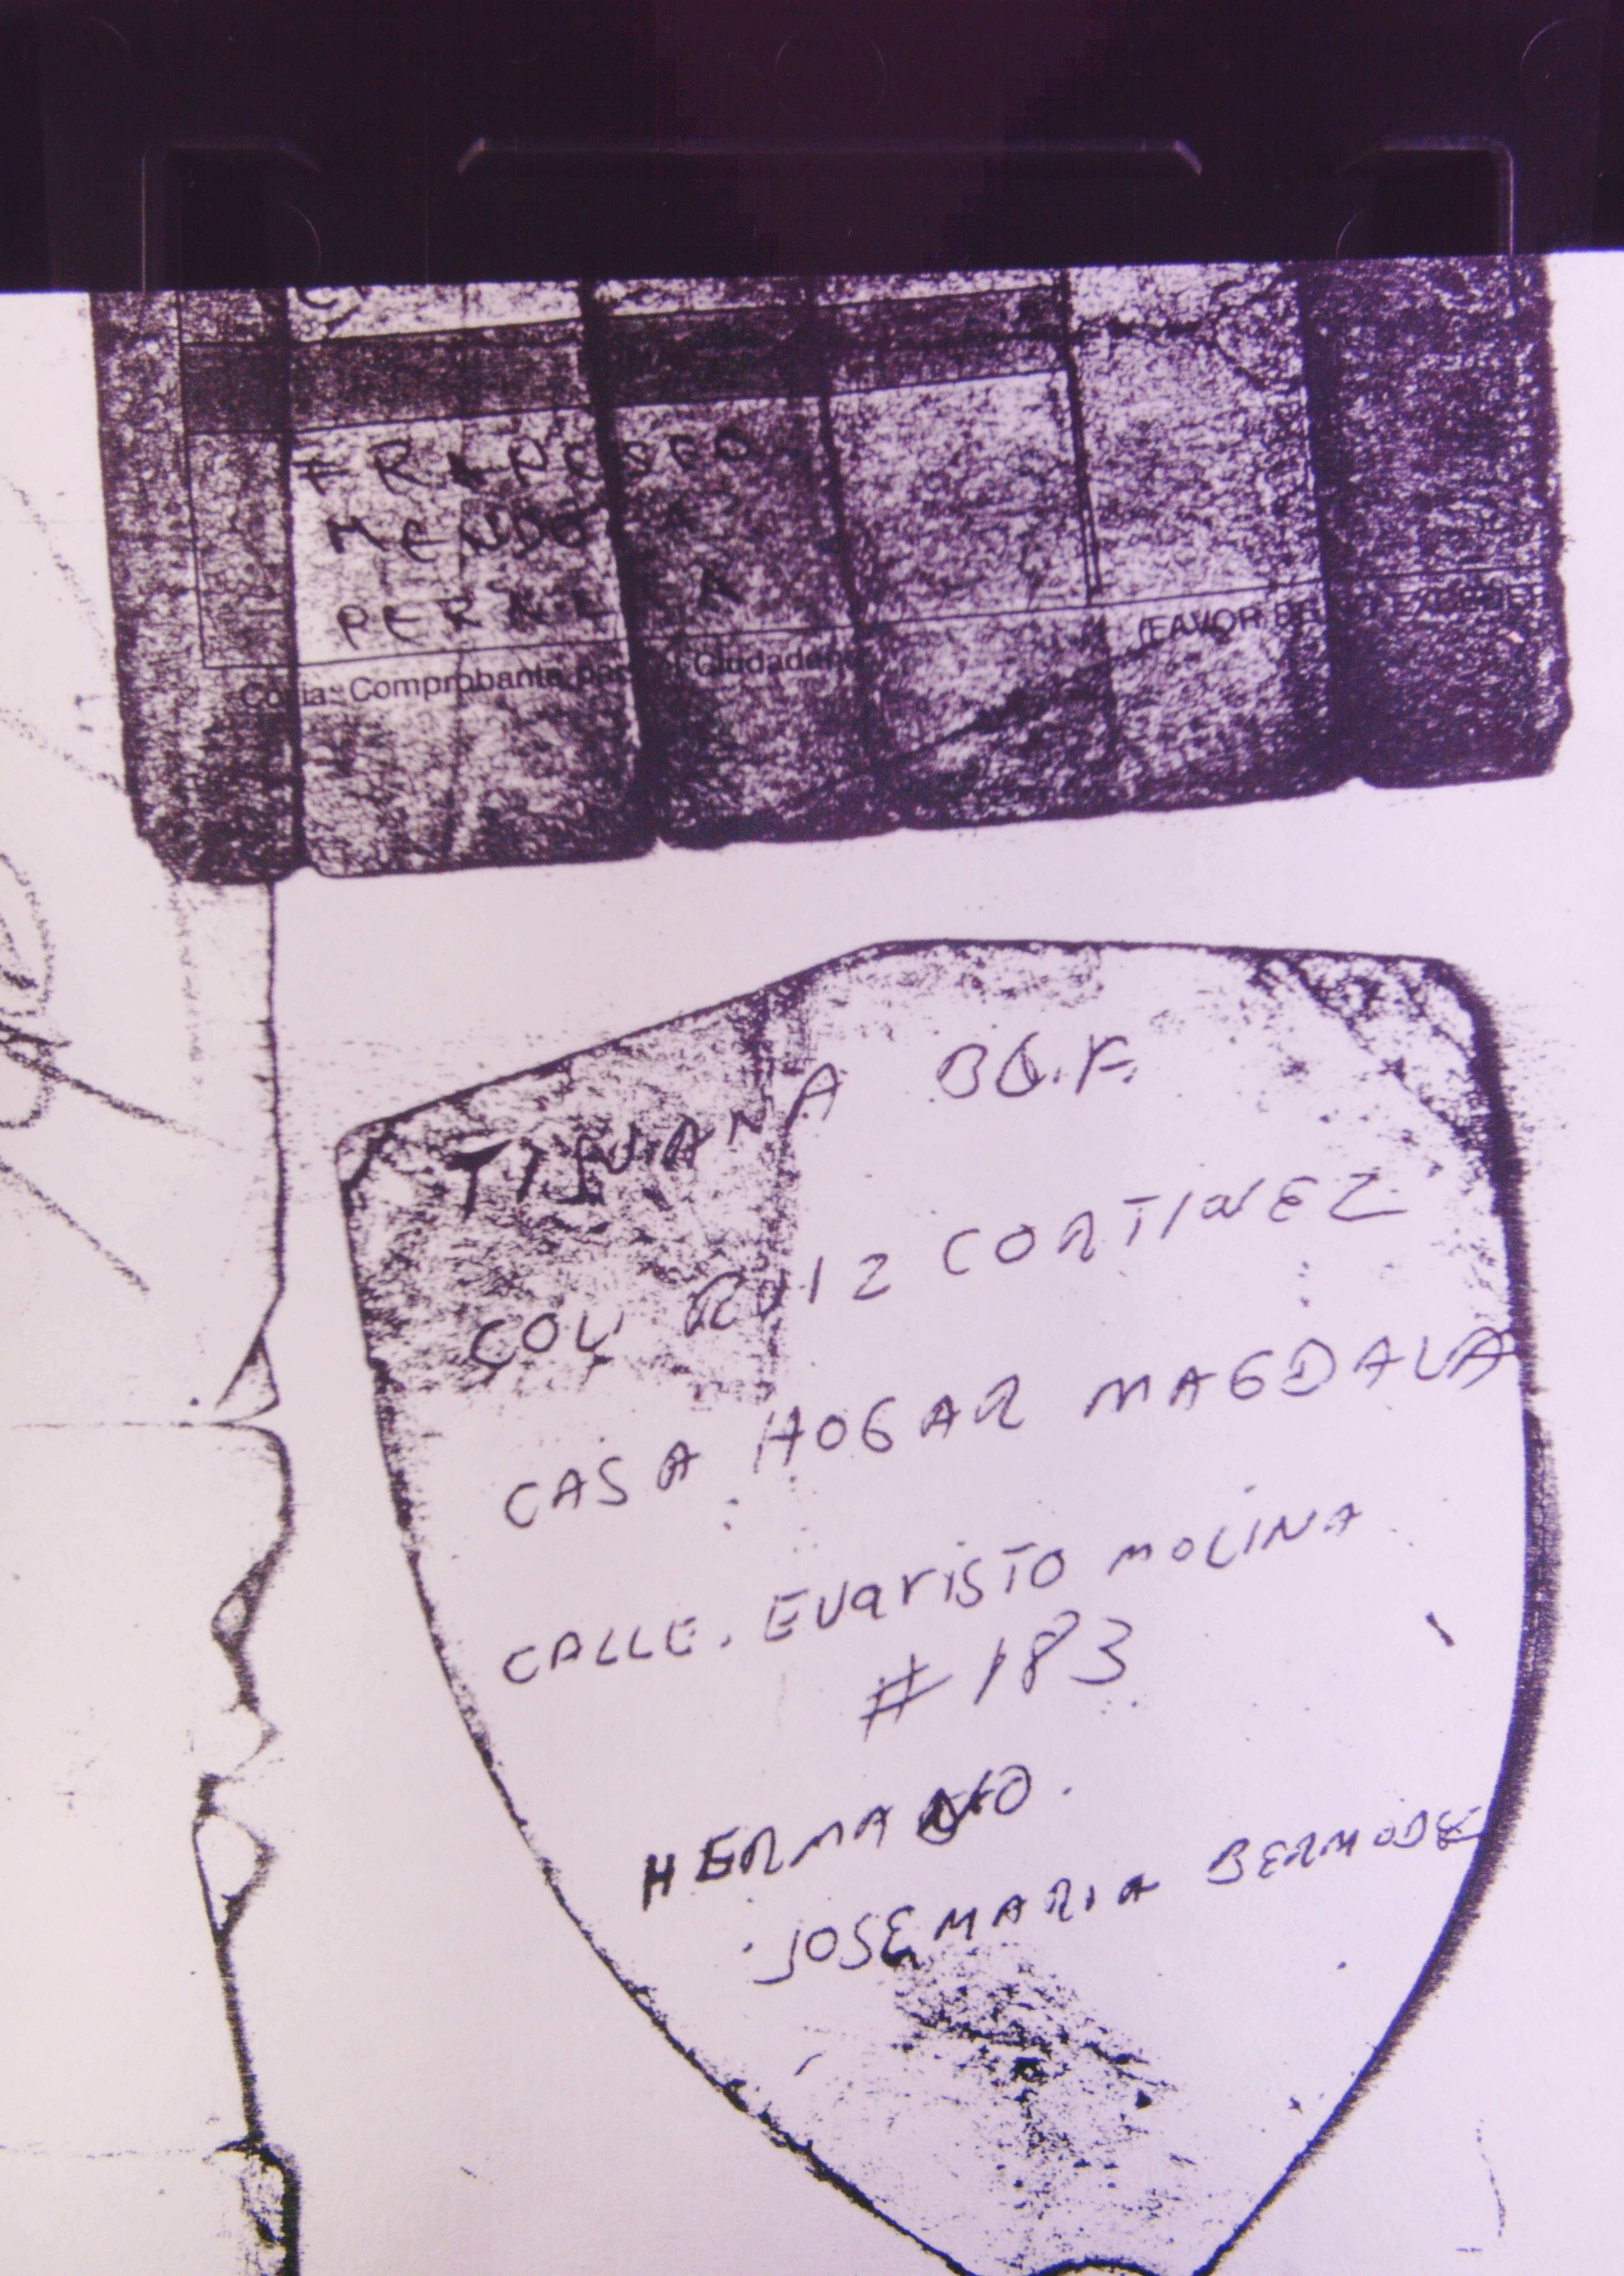 FRANCISCO
MENDO A
PERALTA
Copia: Comprobante para el Ciudadano
(FAVOR DE
TIJUANA BC.
COL RUIZ CORTINEZ
CASA HOGAR MAGDALA
CALLE. EVARISTO MOLINA
#183
HERMANO.
JOSE MARIA BERMODEZ